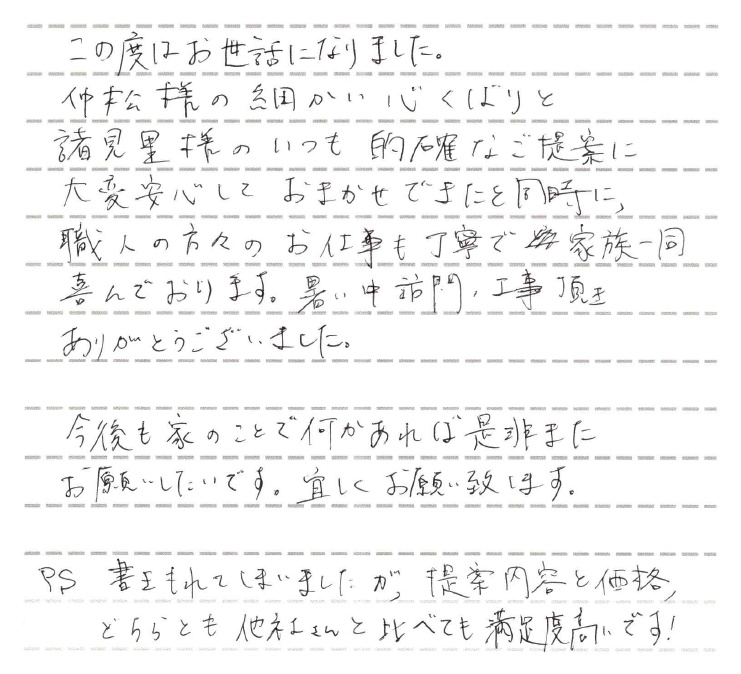 この度はお世話になりました。
仲松様の細かい心くばりと
諸見里様のいつも的確なご提案に
大変安心して おまかせできたと同時に、
職人の方々のお仕事も丁寧で家族一同
喜んでおります。暑い中訪問、工事頂き
ありがとうございました。
今後も家のことで何かあれば是非また
お願いしたいです。宜しくお願い致します。
PS 書きもれてしまいましたが、提案内容と価格、
どちらとも他社さんと比べても満足度高いです!